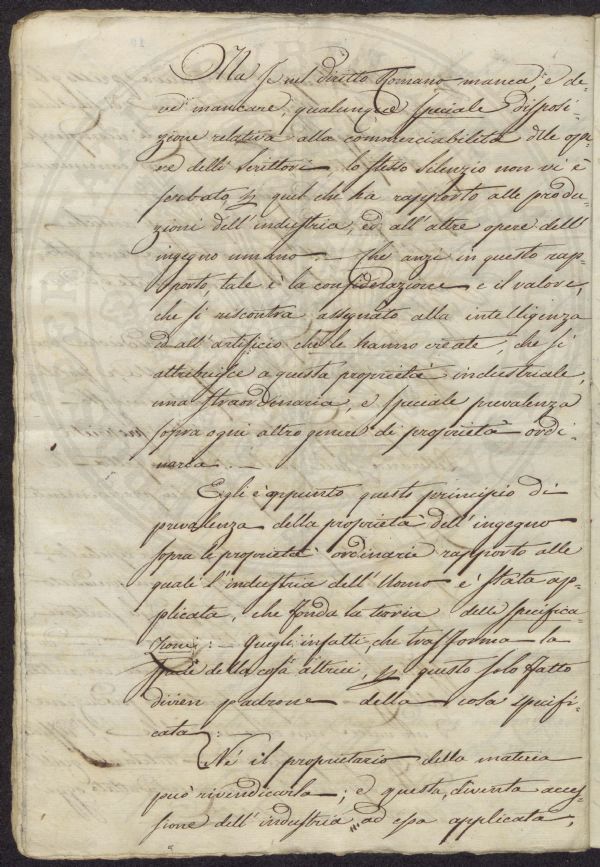 Ma se nel diritto Romano manca, e de-
ve mancare qualunque speciale disposi-
zione relativa alla commerciabilità delle ope-
re delli scrittori, lo stesso silenzio non vi è
serbato p quel che ha rapporto alle produ-
zioni dell'industria, ed all'altre opere dell'
ingegno umano. — Che anzi in questo rap-
porto, tale è la considerazione e il valore,
che si riscontra assegnato alla intelligenza
ed all'artificio che le hanno create, che si
attribuisce a questa proprietà industriale,
una straordinaria, e speciale prevalenza
sopra ogni altro genere di proprietà ordi-
naria. —
Egli è appunto questo principio di
prevalenza della proprietà dell'ingegno
sopra le proprietà ordinarie rapporto alle
quali l'industria dell'Uomo è stata ap-
plicata, che fonda la teoria delle specifica-
zioni: — Quegli infatti, che trasforma la
specie della cosa altrui, p questo solo fatto
divien padrone della cosa specifi-
cata: —
Nè il proprietario della materia
può rivendicarla; e questa, diventa acces-
sione dell'industria ad essa applicata,